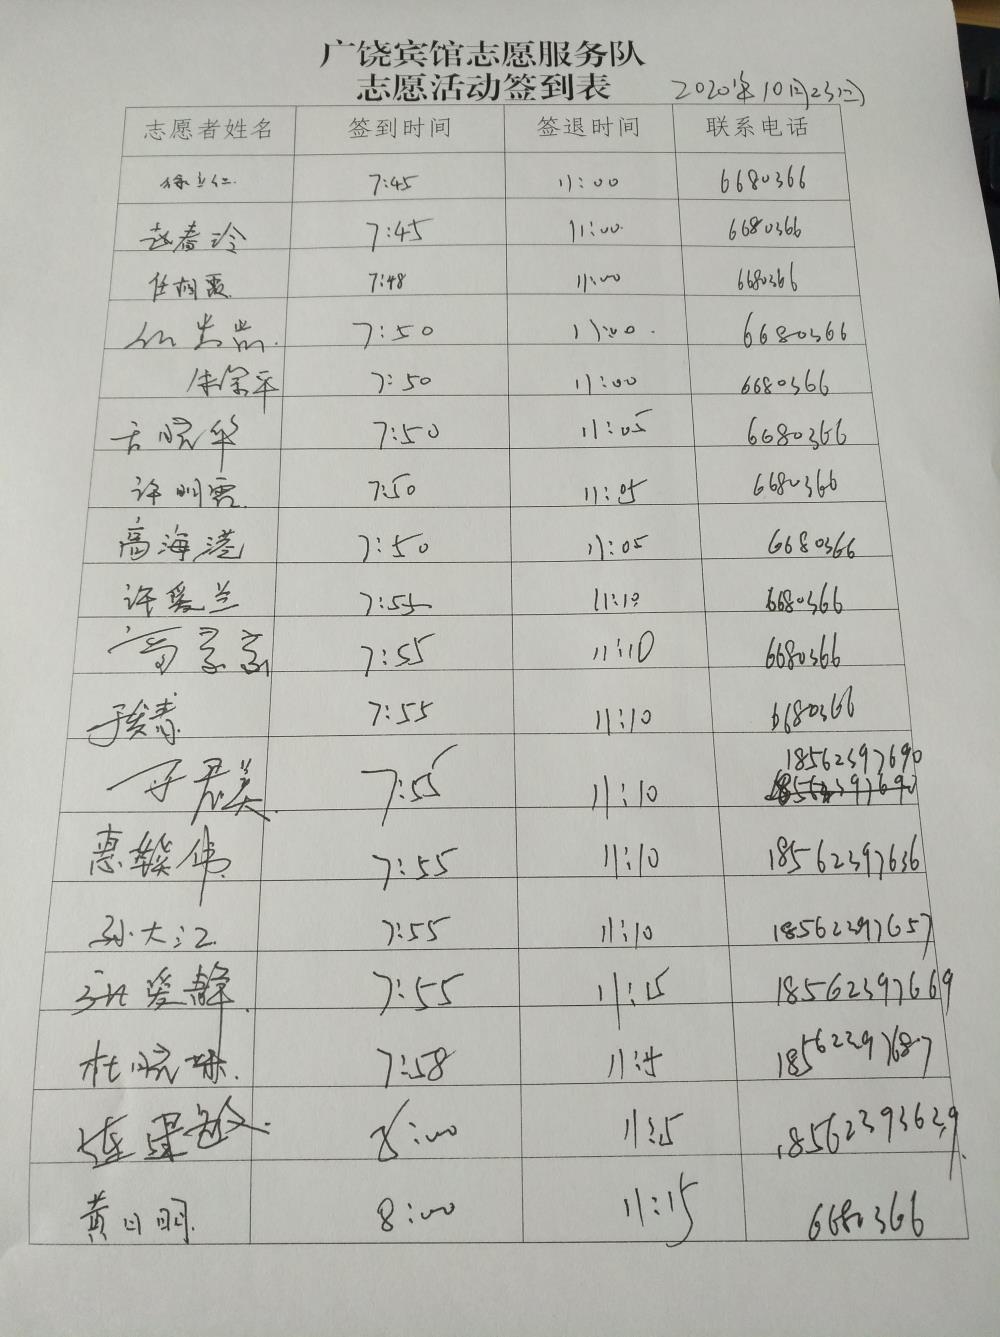 广饶宾馆志愿服务队
志愿活动签到表 2020年10月23日
志愿者姓名 签到时间 签退时间 联系电话
7:45 11:00 6680366
赵春玲 7:45 11:00 6680366
任相霞 7:48 11:00 6680366
7:50 11:00 6680366
7:50 11:00 6680366
7:50 11:05 6680366
许明霞 7:50 11:05 6680366
高海港 7:50 11:05 6680366
许爱兰 7:55 11:10 6680366
7:55 11:10 6680366
7:55 11:10 6680366
7:55 11:10 18562397690
7:55 11:10 18562397636
孙大江 7:55 11:10 18562397657
7:55 11:15 18562397669
杜晓 7:58 11:15 18562397687
8:00 11:15
黄日明 8:00 11:15 6680366